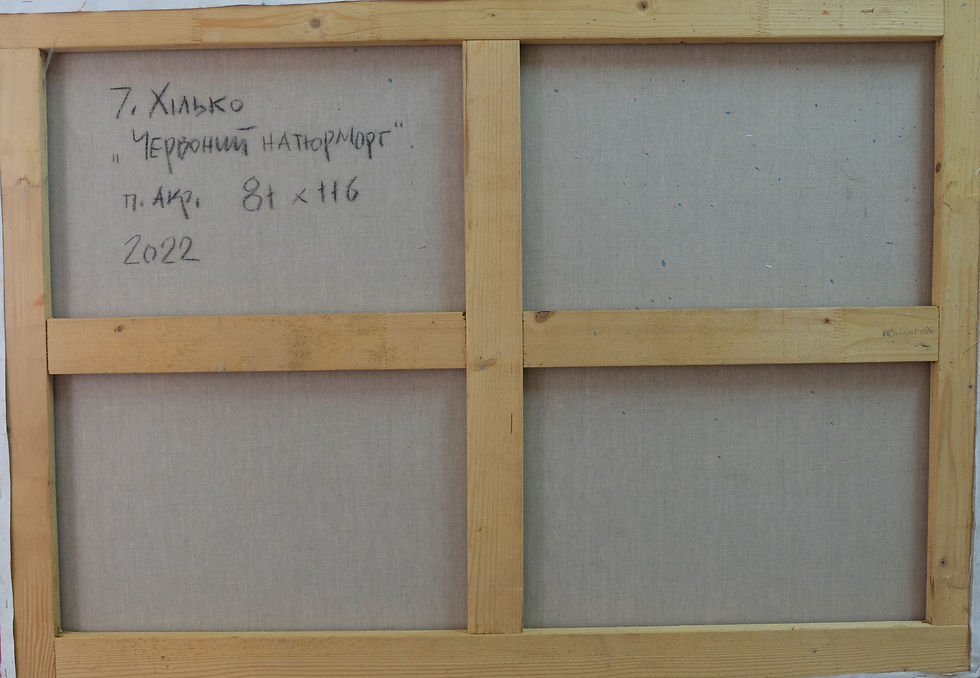 7. Хілько
„Червоний натюрморт"
п. Акр. 81 x 116
2022